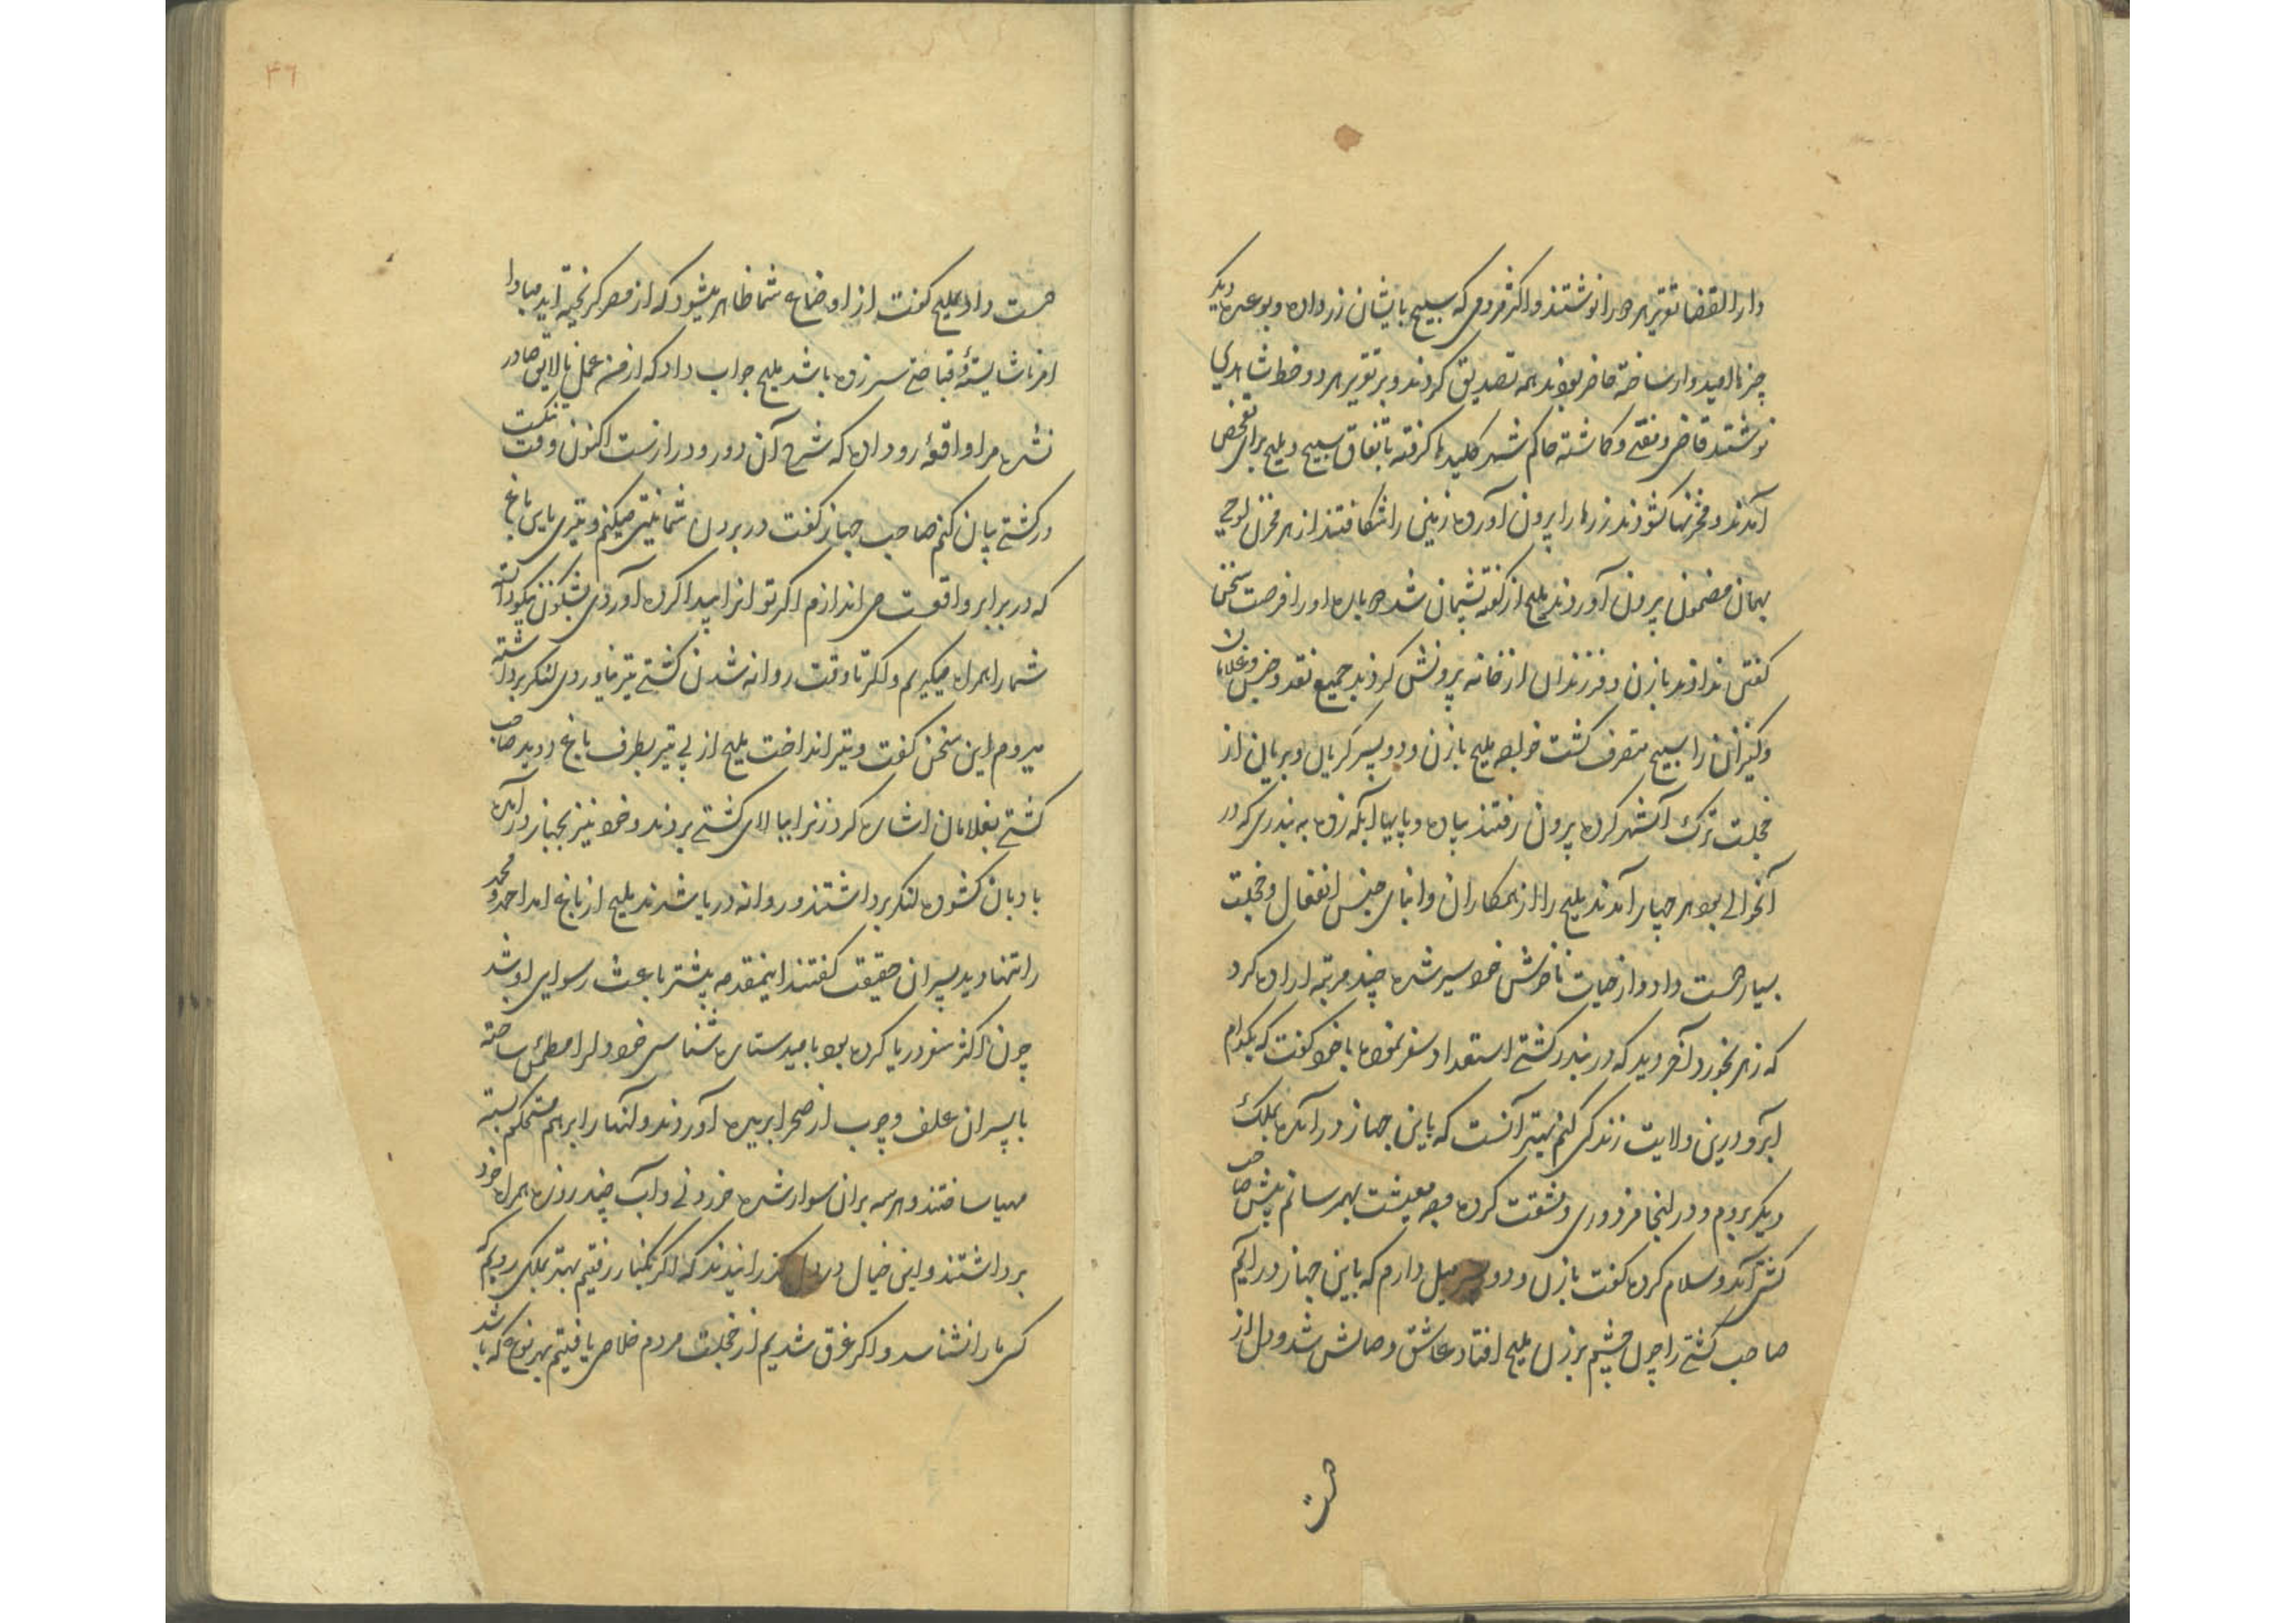 دارالقضا تقریر هر دو را نوشتند و اکثر مردمی که سبیح بایشان زر داده و بوعده دیگر
چیزها امیدوار ساخته حاضر بودند همه تصدیق کردند و بر تقریر هر دو خط شاهدی
نوشتند قاضی و مفتی و کماشته حاکم شهر کلیدها کرفته باتفاق سبیح و ملیح برای تفحص
آمدند و مخزنها کشودند زرها را بیرون آورده زمین را شکافتند از هر مخزن لوحی
بهمان مضمون بیرون آوردند ملیح از کفته پشیمان شده دوباره او را فرصت سخن
کفتن ندادند با زن و فرزندان از خانه بیرونش کردند جمیع نقد و جنس و غلامان
و کنیزان را سبیح متصرف کشت خواجه ملیح با زن و دو پسر کریان و بریان از
خجلت ترک آنشهر کرده بیرون رفتند پیاده و پاپها آبله زده به بندری که در
آنحوالی بود هر چهار آمدند ملیح را از همکاران و ابنای جنس انفعال و خجلت
بسیار دست داد و از حیات ناخوش خود سیر شده چند مرتبه اراده کرد
که زهر بخورد آخر دید که در بندر کشتی استعداد سفر نموده با خود کفت که بکدام
آبرو درین ولایت زندکی کنم بهتر آنست که باین جهاز درآمده بملک
دیکر بروم و در آنجا مزدوری و مشقت کرده وجه معیشت بهم رسانم پیش صاحب
کشتی آمد و سلام کرده کفت با زن و دو پسر میل دارم که باین جهاز در آیم
صاحب کشتی را چون چشم بر زن ملیح افتاد عاشق وصالش شد و دل از
دست
۳۶
دست داد بملیح کفت از اوضاع شما ظاهر میشود که از مصر کریخته اید مبادا
امر ناشایسته و قباحتی سر زده باشد ملیح جواب داد که از من عمل نالایق صادر
نشده مرا واقعه رو داده که شرح آن دور و دراز ست اکنون وقت نیکست
در کشتی بیان کنم صاحب جهاز کفت در بردن شما نیتی میکنم و تیری باین باغ
که در برابر واقعست می اندازم اکر تو آنرا پیدا کرده آوردی شکون نیکو دانسته
شما را همراه میکیرم و اکر تا وقت روانه شدن کشتی تیر نیاوردی لنکر برداشته
میروم این سخن کفت و تیر انداخت ملیح از پی تیر بطرف باغ دوید صاحب
کشتی بغلامان اشاره کرد زنرا ببالای کشتی بردند و خود نیز بجهاز در آمده
بادبان کشوده لنکر برداشتند و روانه دریا شدند ملیح از باغ آمد احمد و محمد
را تنها دید پسران حقیقت کفتند اینمقدمه بیشتر باعث رسوایی او شد
چون اکثر سفر دریا کرده بود بامید ستاره شناسی خود دلرا مطمئن ساخته
با پسران علف و چوب از صحرا بریده آوردند و آنها را برهم مستحکم بسته
مهیا ساختند و هر سه بران سوار شده خوردنی و آب چند روزه همراه خود
برداشتند و این خیال در دل کذرانیدند که اکر بکنار رفتیم بهتر بملکی رویم که
کسی ما را نشناسد و اکر غرق شدیم از خجلت مردم خلاصی یافتیم بهر نوع که باشد